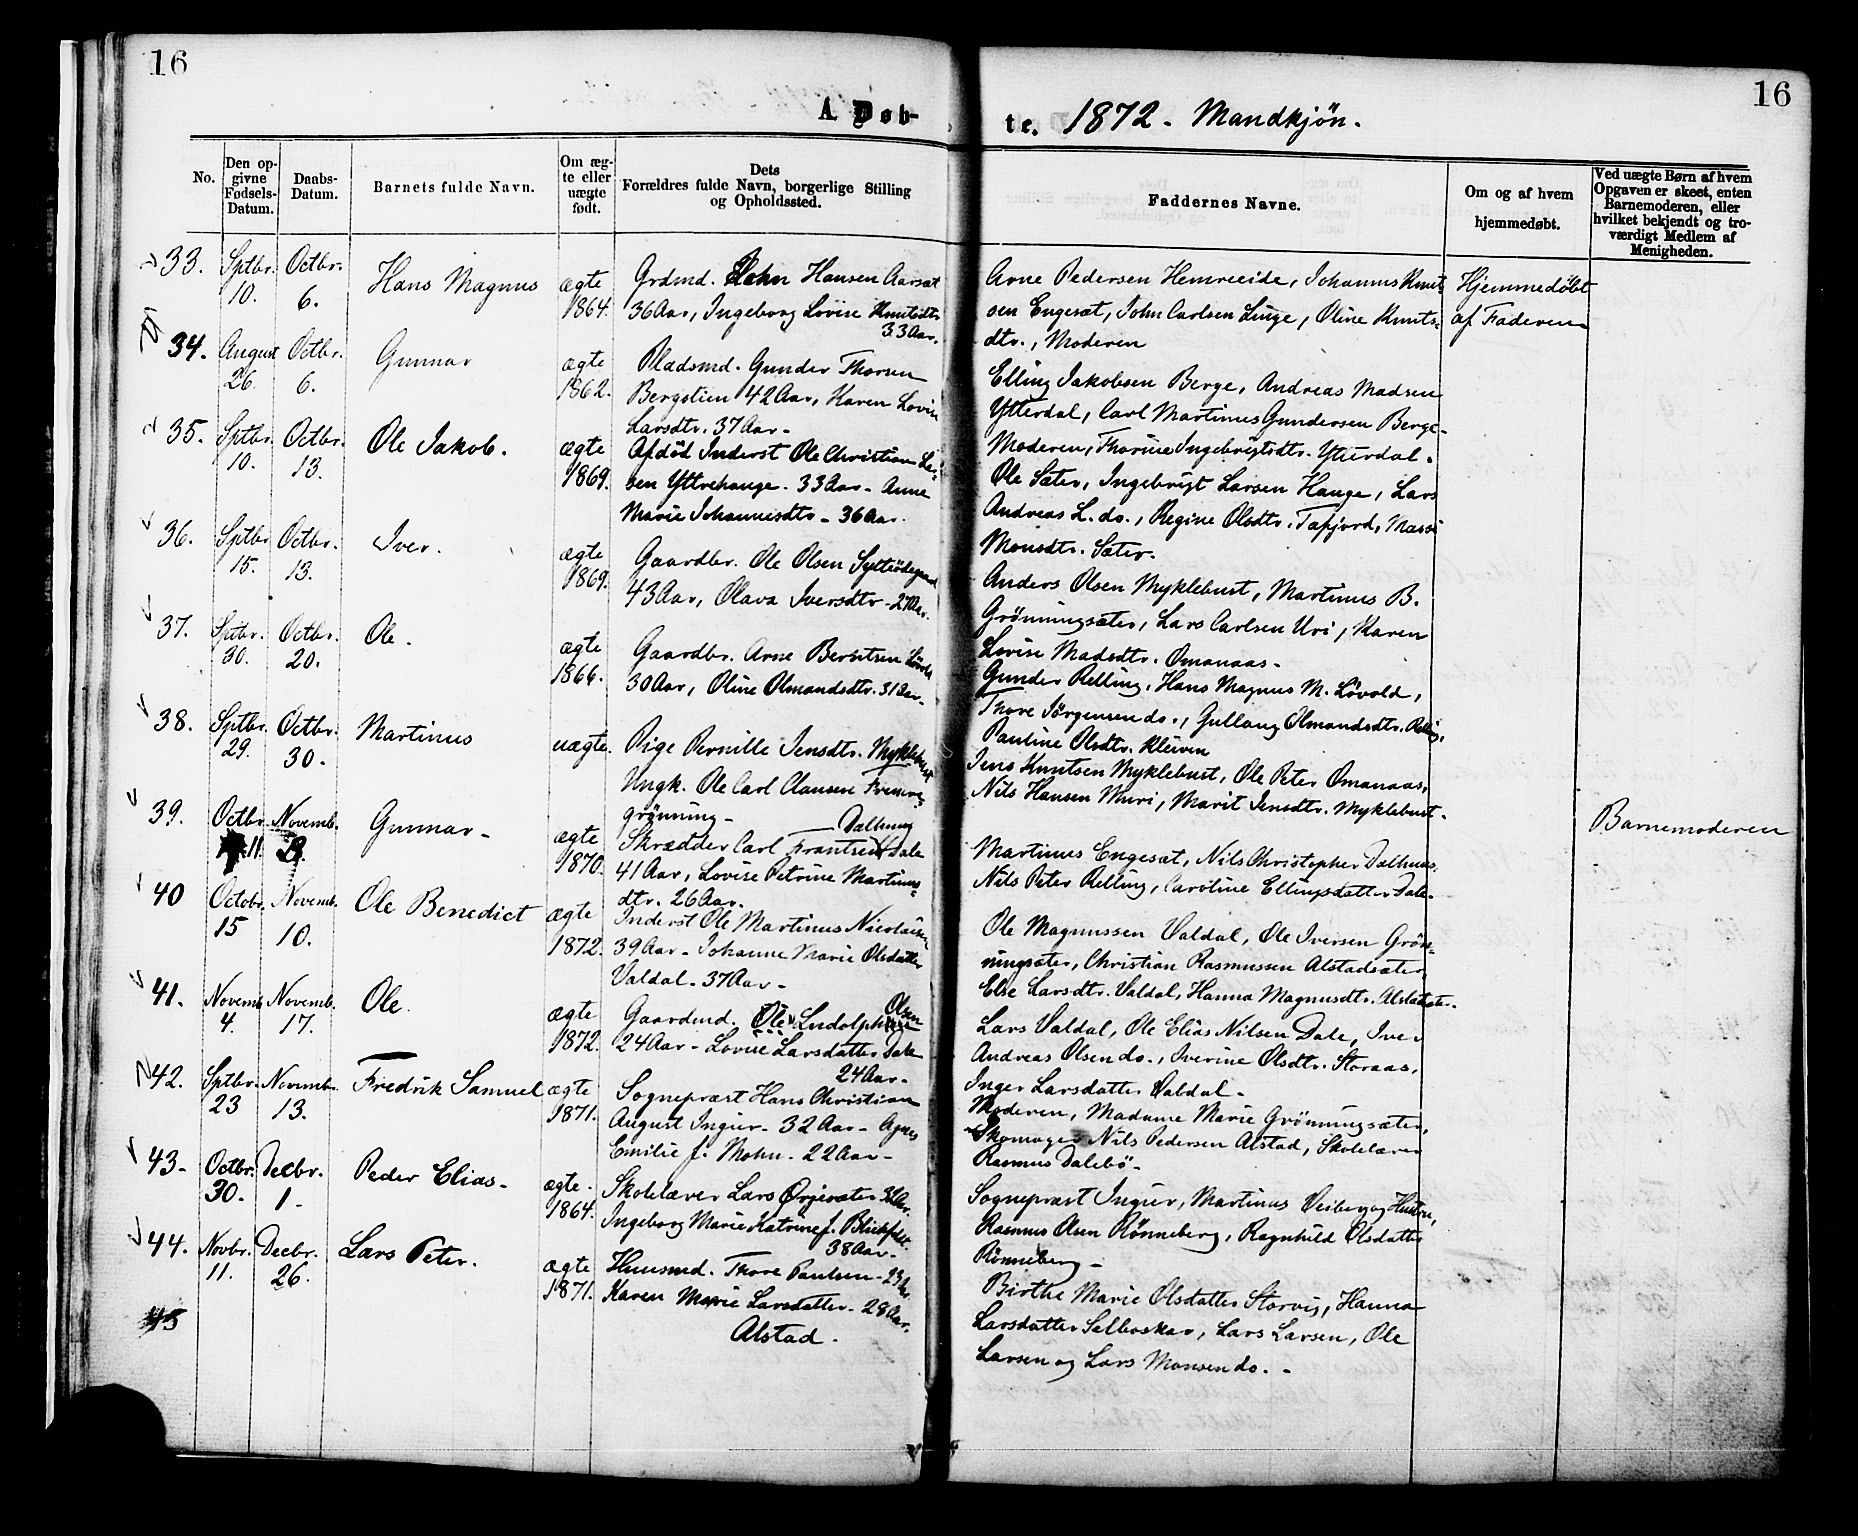 16
16
A. Døb-
te. 1872 - Mandkjøn.
No.
Den op-
givne
Fødsels-
Datum.
Daabs-
Datum.
Barnets fulde Navn.
Om æg-
te eller
uægte
født.
Dets
Forældres fulde Navn, borgerlige Stilling
og Opholdssted.
Faddernes Navne.
Om og af hvem
hjemmedøbt.
Ved uægte Børn af hvem
Opgaven er skeet, enten
Barnemoderen, eller
hvilket bekjendt og tro-
værdigt Medlem af
Menigheden.
33. Sptbr. 10. Octbr. 6. Hans Magnus ægte 1864.
Grdmd. John Hansen Aarsæt
36 Aar, Ingeborg Lovise Knutsdtr
33 Aar.
Arne Pedersen Hemreeide, Johannes Knut-
sen Engesæt, John Carlsen Linge, Oline Knuts-
dtr., Moderen
Hjemmedøbt
af Faderen
34. August 26. Octbr. 6. Gunnar ægte 1862.
Pladsmd. Gunder Thoresen
Bergstien 42 Aar, Karen Lovise
Larsdtr. 37 Aar -
Elling Jakobsen Berge, Andreas Madsen
Ytterdal, Carl Martinus Gundersen Berge-
Moderen, Thorine Ingebrigtsdtr. Ytterdal.
35. Sptbr. 10. Octbr. 13. Ole Jakob. ægte 1869.
Afdød Inderst Ole Christian Lar-
sen Yttrehauge - 33 Aar - Anne
Marie Johannesdtr - 36 Aar.
Ole Sæter, Ingebrigt Larsen Hauge, Lars
Andreas L. do., Regine Olsdtr. Tafjord,
Monsdtr. Sæter.
36. Sptbr 15. Octbr. 13. Iver. ægte 1869.
Gaardbr. Ole Olsen Sylteødegaard
43 Aar, Olava Iversdtr - 27 Aar.
Anders Olsen Myklebust, Martinus B.
Grønningsæter, Lars Carlsen Uri, Karen
Lovise Madsdtr. Omanaas -
37. Sptbr. 30. Octbr. 20. Ole. ægte 1866.
Gaardbr. Arne Berntsen Løvold
30 Aar, Oline Olmandsdtr. 31 Aar -
Gunder Relling, Hans Magnus M. Løvold,
Thore Jörgensen do., Gullaug Olmandsdtr. Relling,
Pauline Olsdtr. Kleiven
38. Sptbr. 29. Octbr. 30. Martinus uægte.
Pige Pernille Jensdtr. Myklebust
Ungk. Ole Carl Clausen Fremre-
grønning -
Jens Knutsen Myklebust, Ole Peter Omanaas,
Nils Hansen Muri, Marit Jensdtr. Myklebust.
Barnemoderen
39. Octbr. 11. Novemb. Gunnar - ægte 1870.
Dalhung
Skrædder Carl Frantsen Dale
41 Aar, Lovise Petrine Martinus-
dtr. 26 Aar.
Martinus Engesæt, Nils Christopher Dalhung,
Nils Peter Relling, Caroline Ellingsdatter Dale.
40 Octobr. 15 Novemb. 10. Ole Benedict ægte 1872.
Inderst Ole Martinus Nicolaisen
39 Aar - Johanne Marie Olsdatter
Valdal - 37 Aar -
Ole Magnussen Valdal, Ole Iversen Grøn-
ningsæter, Christian Rasmussen Alstadsæter,
Else Larsdtr. Valdal, Hanna Magnusdtr. Alstadsæter.
41. Novemb. 4. Novemb. 17. Ole. ægte 1872.
Olsen
Gaardmd. Ole Ludolph
24 Aar - Lovise Larsdatter Dale
24 Aar -
Lars Valdal, Ole Elias Nilsen Dale, Iver
Andreas Olsen do., Iverine Olsdtr. Storaas,
Inger Larsdatter Valdal -
42. Sptbr. 23 Novemb. 13. Fredrik Samuel ægte 1871.
Sognepræst Hans Christian
August Ingier - 32 Aar - Agnes
Emilie f. Mohn - 22 Aar -
Moderen, Madame Marie Grønningsæter,
Skomager Nils Pedersen Alstad, Skolelærer
Rasmus Dalebø -
43 - Octbr. 30. Decbr. 1. Peder Elias - ægte - 1864.
Skolelærer Lars Ørjesæter
Ingeborg Marie Katrine f. Blikfeldt.
38 Aar -
Sognepræst Ingier, Martinus Veiberg og Hustru,
Rasmus Olsen Rønneberg, Ragnhild Olsdatter
Rønneberg -
44. Novbr. 11. Decbr. 26. Lars Peter. ægte 1871.
Huusmd. Thore Paulsen - 23 Aar
Karen Marie Larsdatter - 28 Aar.
Alstad.
Birthe Marie Olsdatter Storvig, Hanna
Larsdatter Selboskar, Lars Larsen, Ole
Larsen og Lars Monsen do. -
45